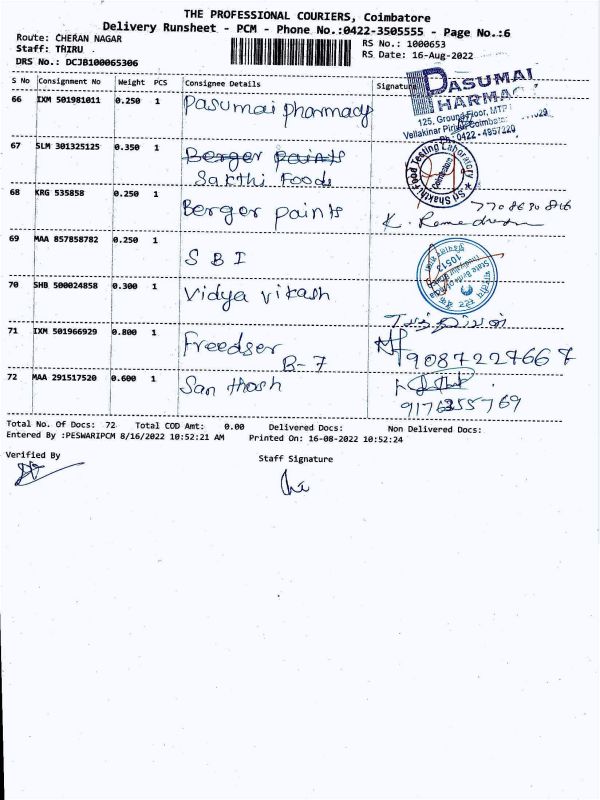 THE PROFESSIONAL COURIERS, Coimbatore
Delivery Runsheet - PCM - Phone No.:0422-3505555 - Page No.:6
Route: CHERAN NAGAR
RS No.: 1000653
Staff: THIRU
RS Date: 16-Aug-2022
DRS No.: DCJB100065306
S No Consignment No Weight PCS Consignee Details Signature
66 IXM 501981011 0.250 1 Pasumai pharmacy
PASUMAI
PHARMACY
125, Ground Floor, MTP
Vellakinar Coimbatore
0422-4857220
67 SLM 301325125 0.350 1 Berger paints
Sakthi Foods
Sri Shakthi Food Testing Laboratory
Coimbatore
68 KRG 535858 0.250 1 Berger paints
69 MAA 857858782 0.250 1 SBI
State Bank of India
10513
70 SHB 500024858 0.300 1 Vidya vikash
71 IXM 501966929 0.800 1 Freedser
B-7
9087227667
72 MAA 291517520 0.600 1 San thosh
Total No. Of Docs: 72 Total COD Amt: 0.00 Delivered Docs: Non Delivered Docs:
Entered By :PESWARIPCM 8/16/2022 10:52:21 AM Printed On: 16-08-2022 10:52:24
Verified By
Staff Signature